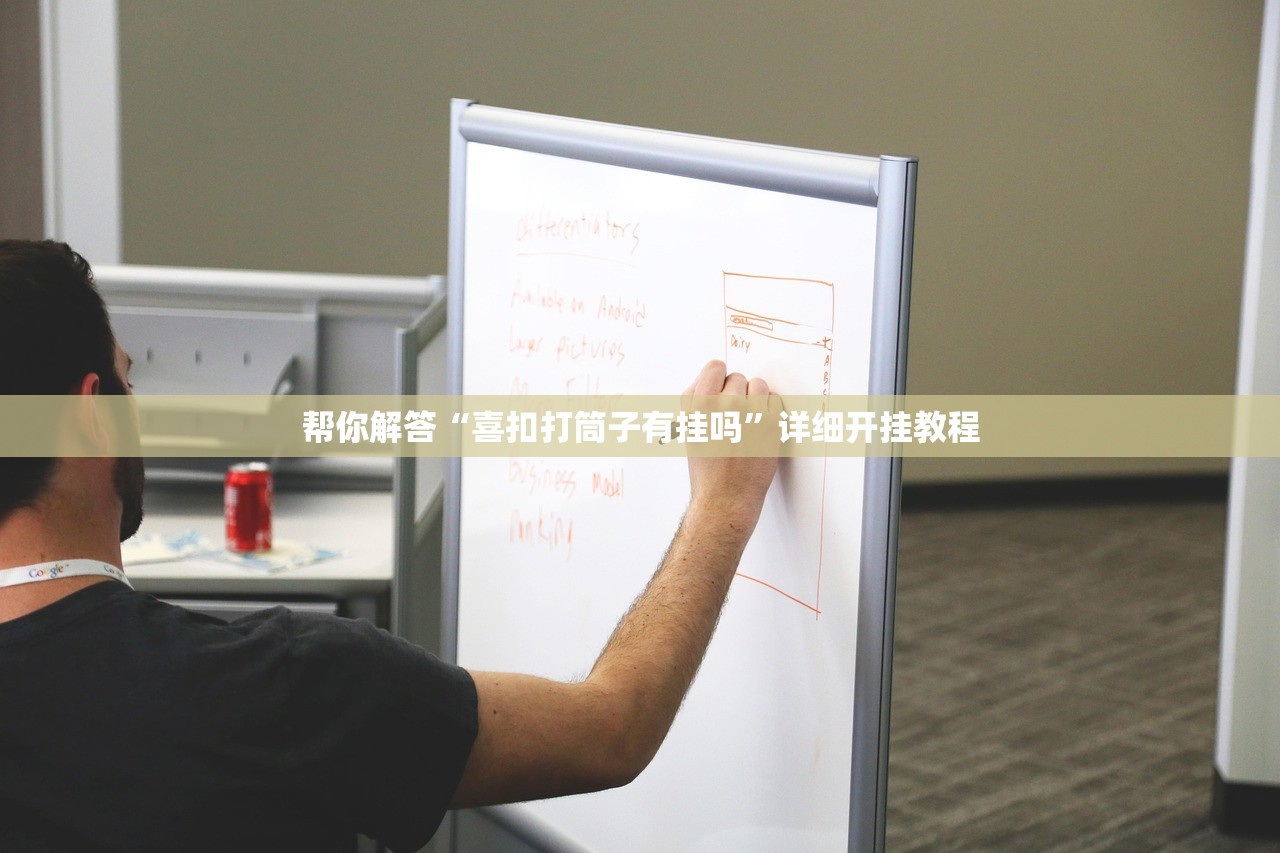 Differentiators
Available on Android
Larger pictures
More Filters
帮你解答“喜扣打筒子有挂吗”详细开挂教程
Business model
ranking
Dairy
A
B
C
Google